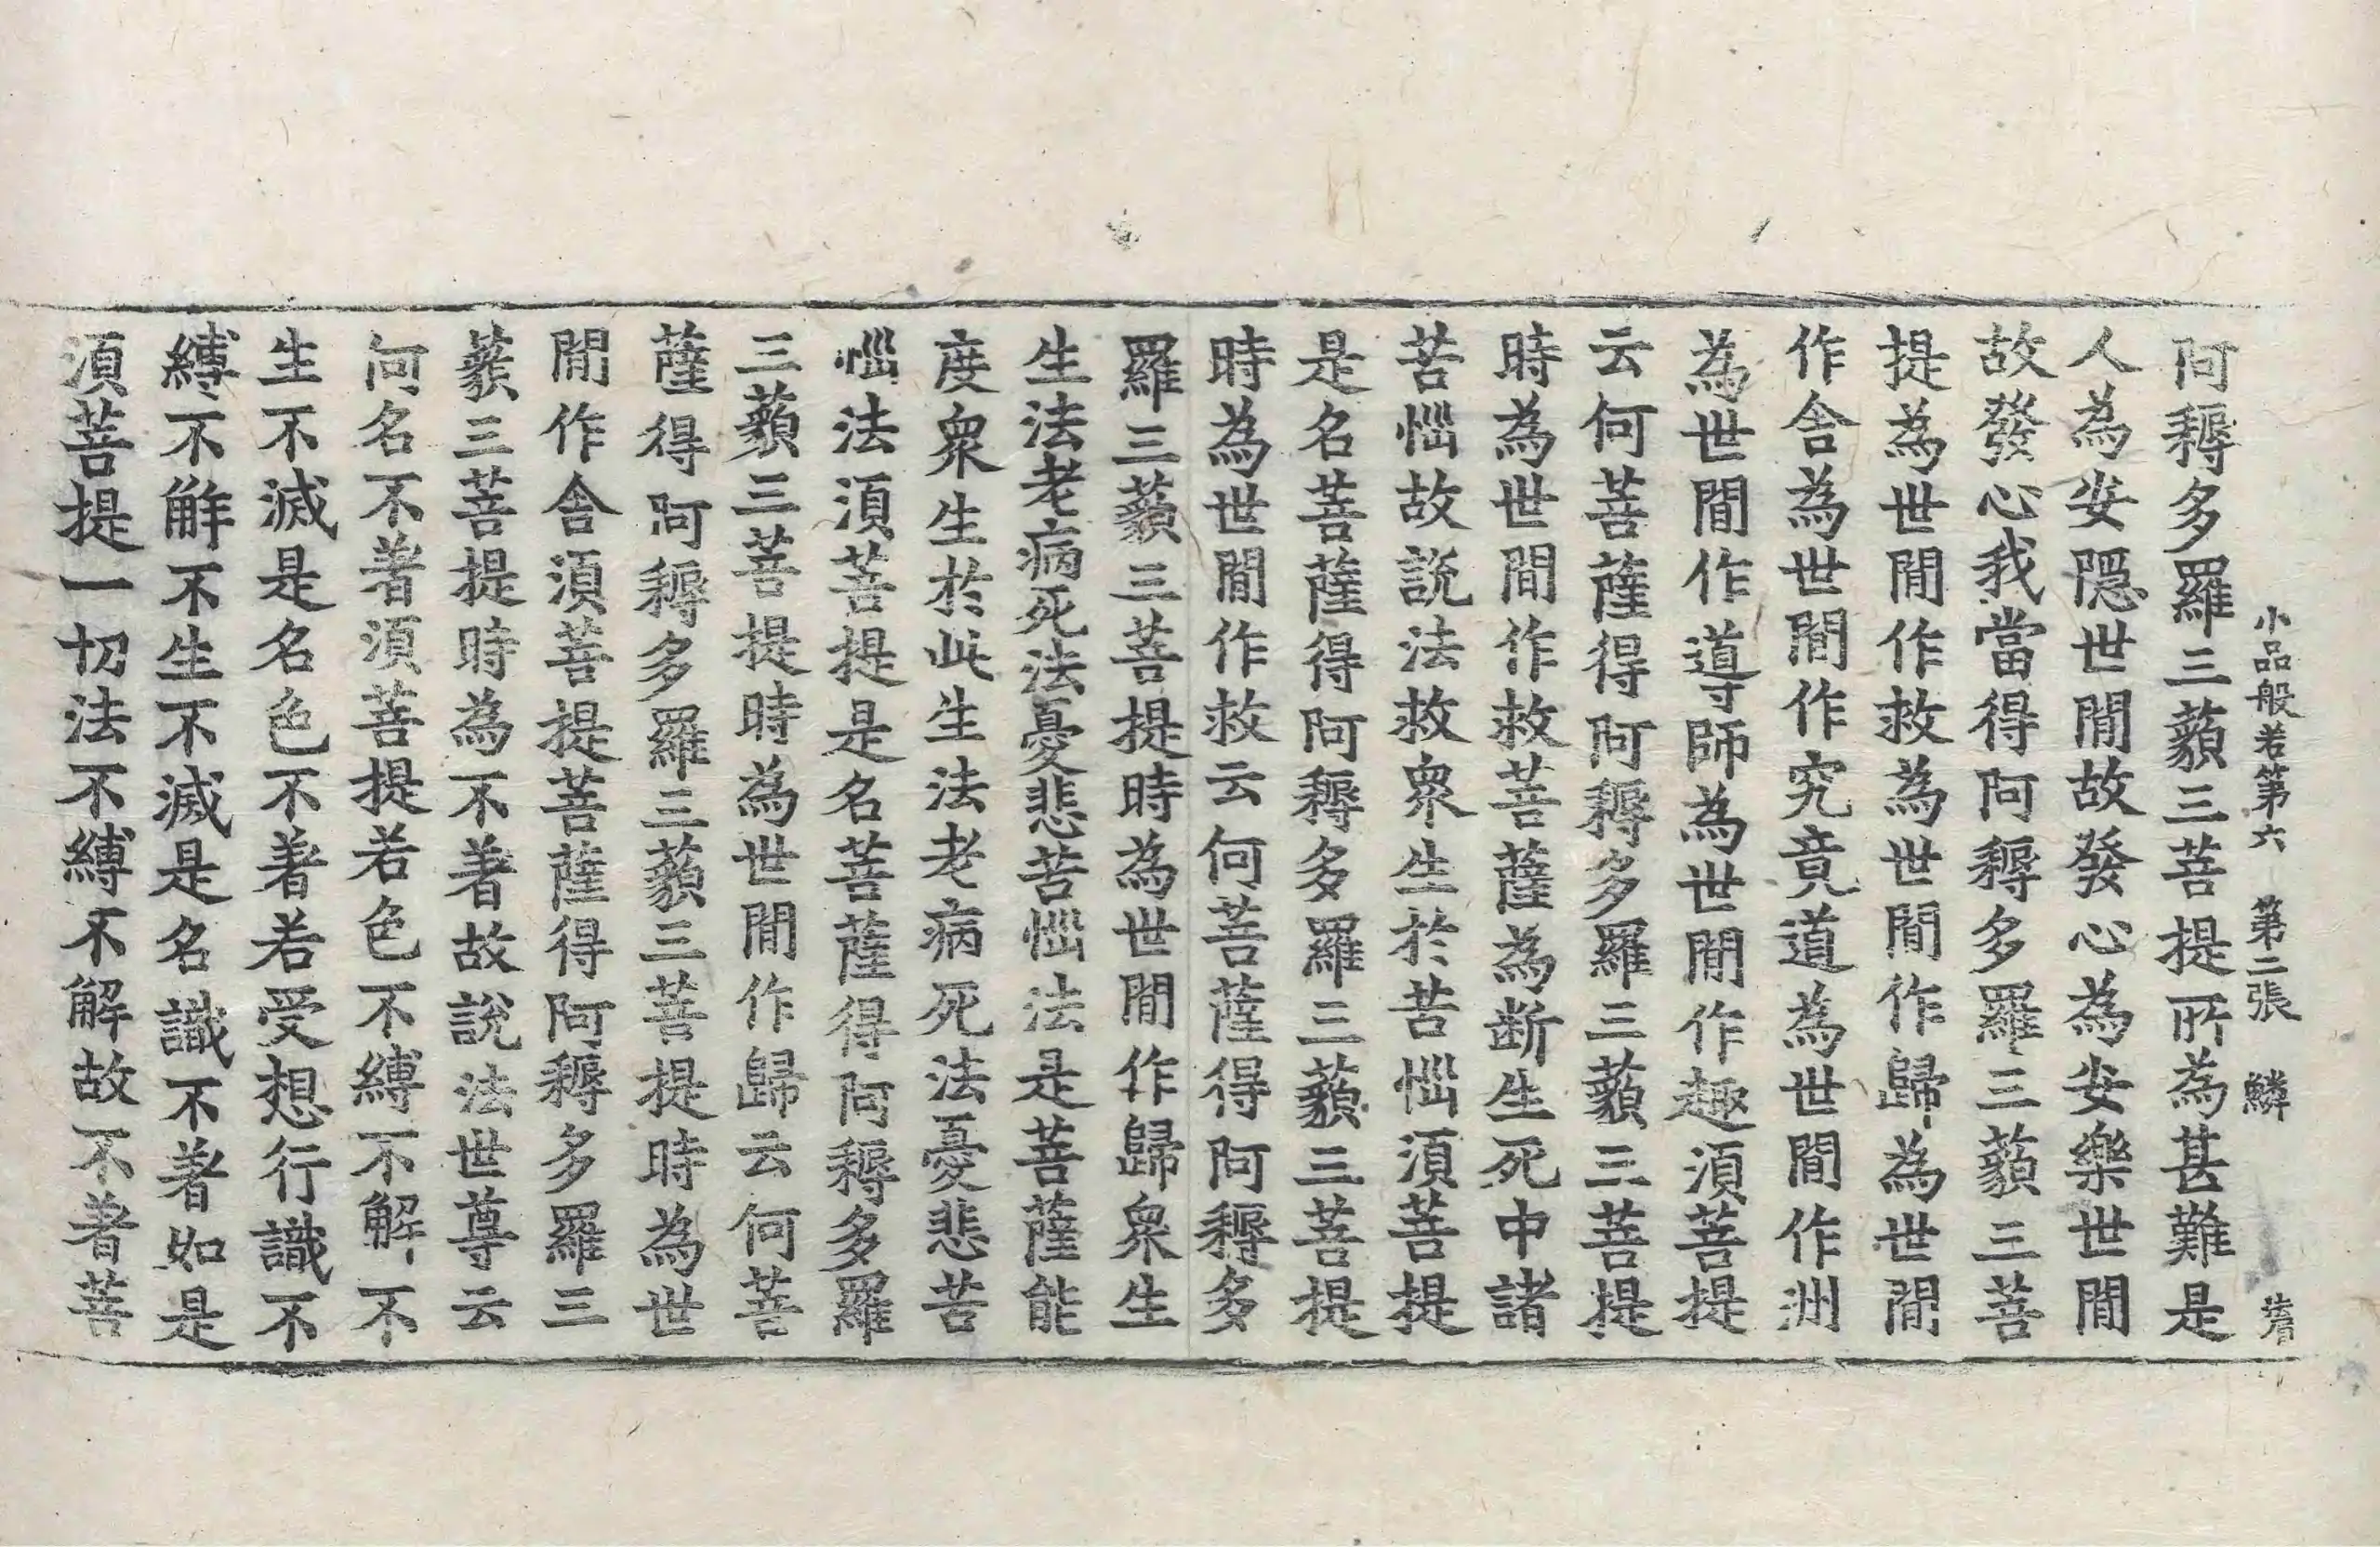 小品般若第六 第二張 鱗
阿耨多羅三藐三菩提所為甚難是
人為安隱世間故發心為安樂世間
故發心我當得阿耨多羅三藐三菩
提為世間作救為世間作歸為世間
作舍為世間作究竟道為世間作洲
為世間作導師為世間作趣須菩提
云何菩薩得阿耨多羅三藐三菩提
時為世間作救菩薩為斷生死中諸
苦惱故說法救眾生於苦惱須菩提
是名菩薩得阿耨多羅三藐三菩提
時為世間作救云何菩薩得阿耨多
羅三藐三菩提時為世間作歸眾生
生法老病死法憂悲苦惱法是菩薩能
度眾生於此生法老病死法憂悲苦
惱法須菩提是名菩薩得阿耨多羅
三藐三菩提時為世間作歸云何菩
薩得阿耨多羅三藐三菩提時為世
間作舍須菩提菩薩得阿耨多羅三
藐三菩提時為不著故說法世尊云
何名不著須菩提若色不縛不解不
生不滅是名色不著若受想行識不
縛不解不生不滅是名識不著如是
須菩提一切法不縛不解故不著菩